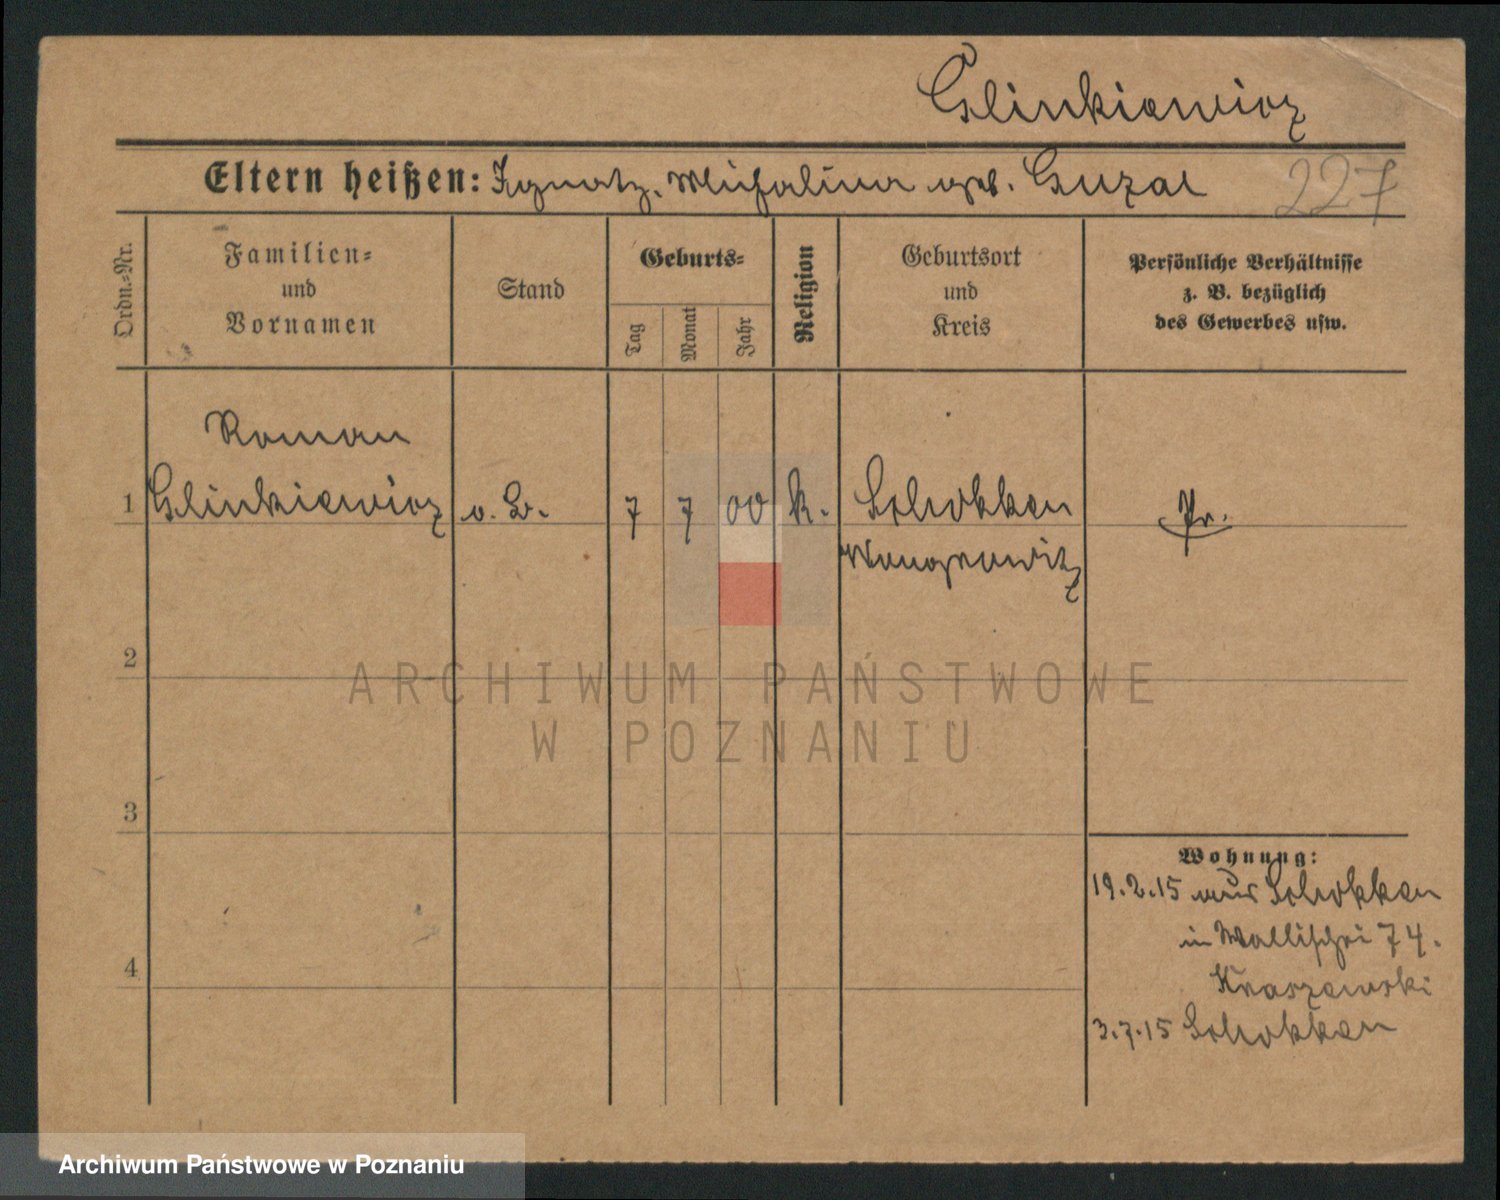 Glinkiewicz
Eltern heißen: Ignatz, Michalina geb. Guzal
227
Ordn.-Nr.
Familien-
und
Vornamen
Stand
Geburts-
Tag
Monat
Jahr
Religion
Geburtsort
und
Kreis
Persönliche Verhältnisse
z. B. bezüglich
des Gewerbes usw.
Roman
1 Glinkiewicz 7 7 00 k. Schokken Pr.
Wongrowitz
2
ARCHIWUM PAŃSTWOWE
W POZNANIU
3
Wohnung:
19.2.15 aus Schokken
in Wallischei 74.
Kraszewski
4
3.7.15 Schokken
Archiwum Państwowe w Poznaniu